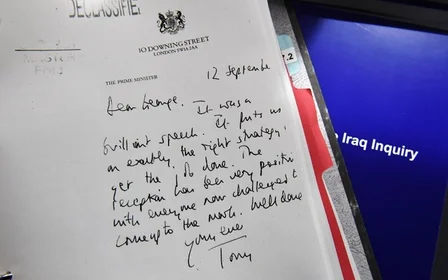 DECLASSIFIED
10 DOWNING STREET
LONDON SW1A 2AA
THE PRIME MINISTER
12 September
Dear George. It was a
brilliant speech. It puts us
on exactly the right strategy to
get the job done. The
reception has been very positive
with everyone now challenged to
come up to the mark. Well done
Yours ever
Tony
.2
e Iraq Inquiry